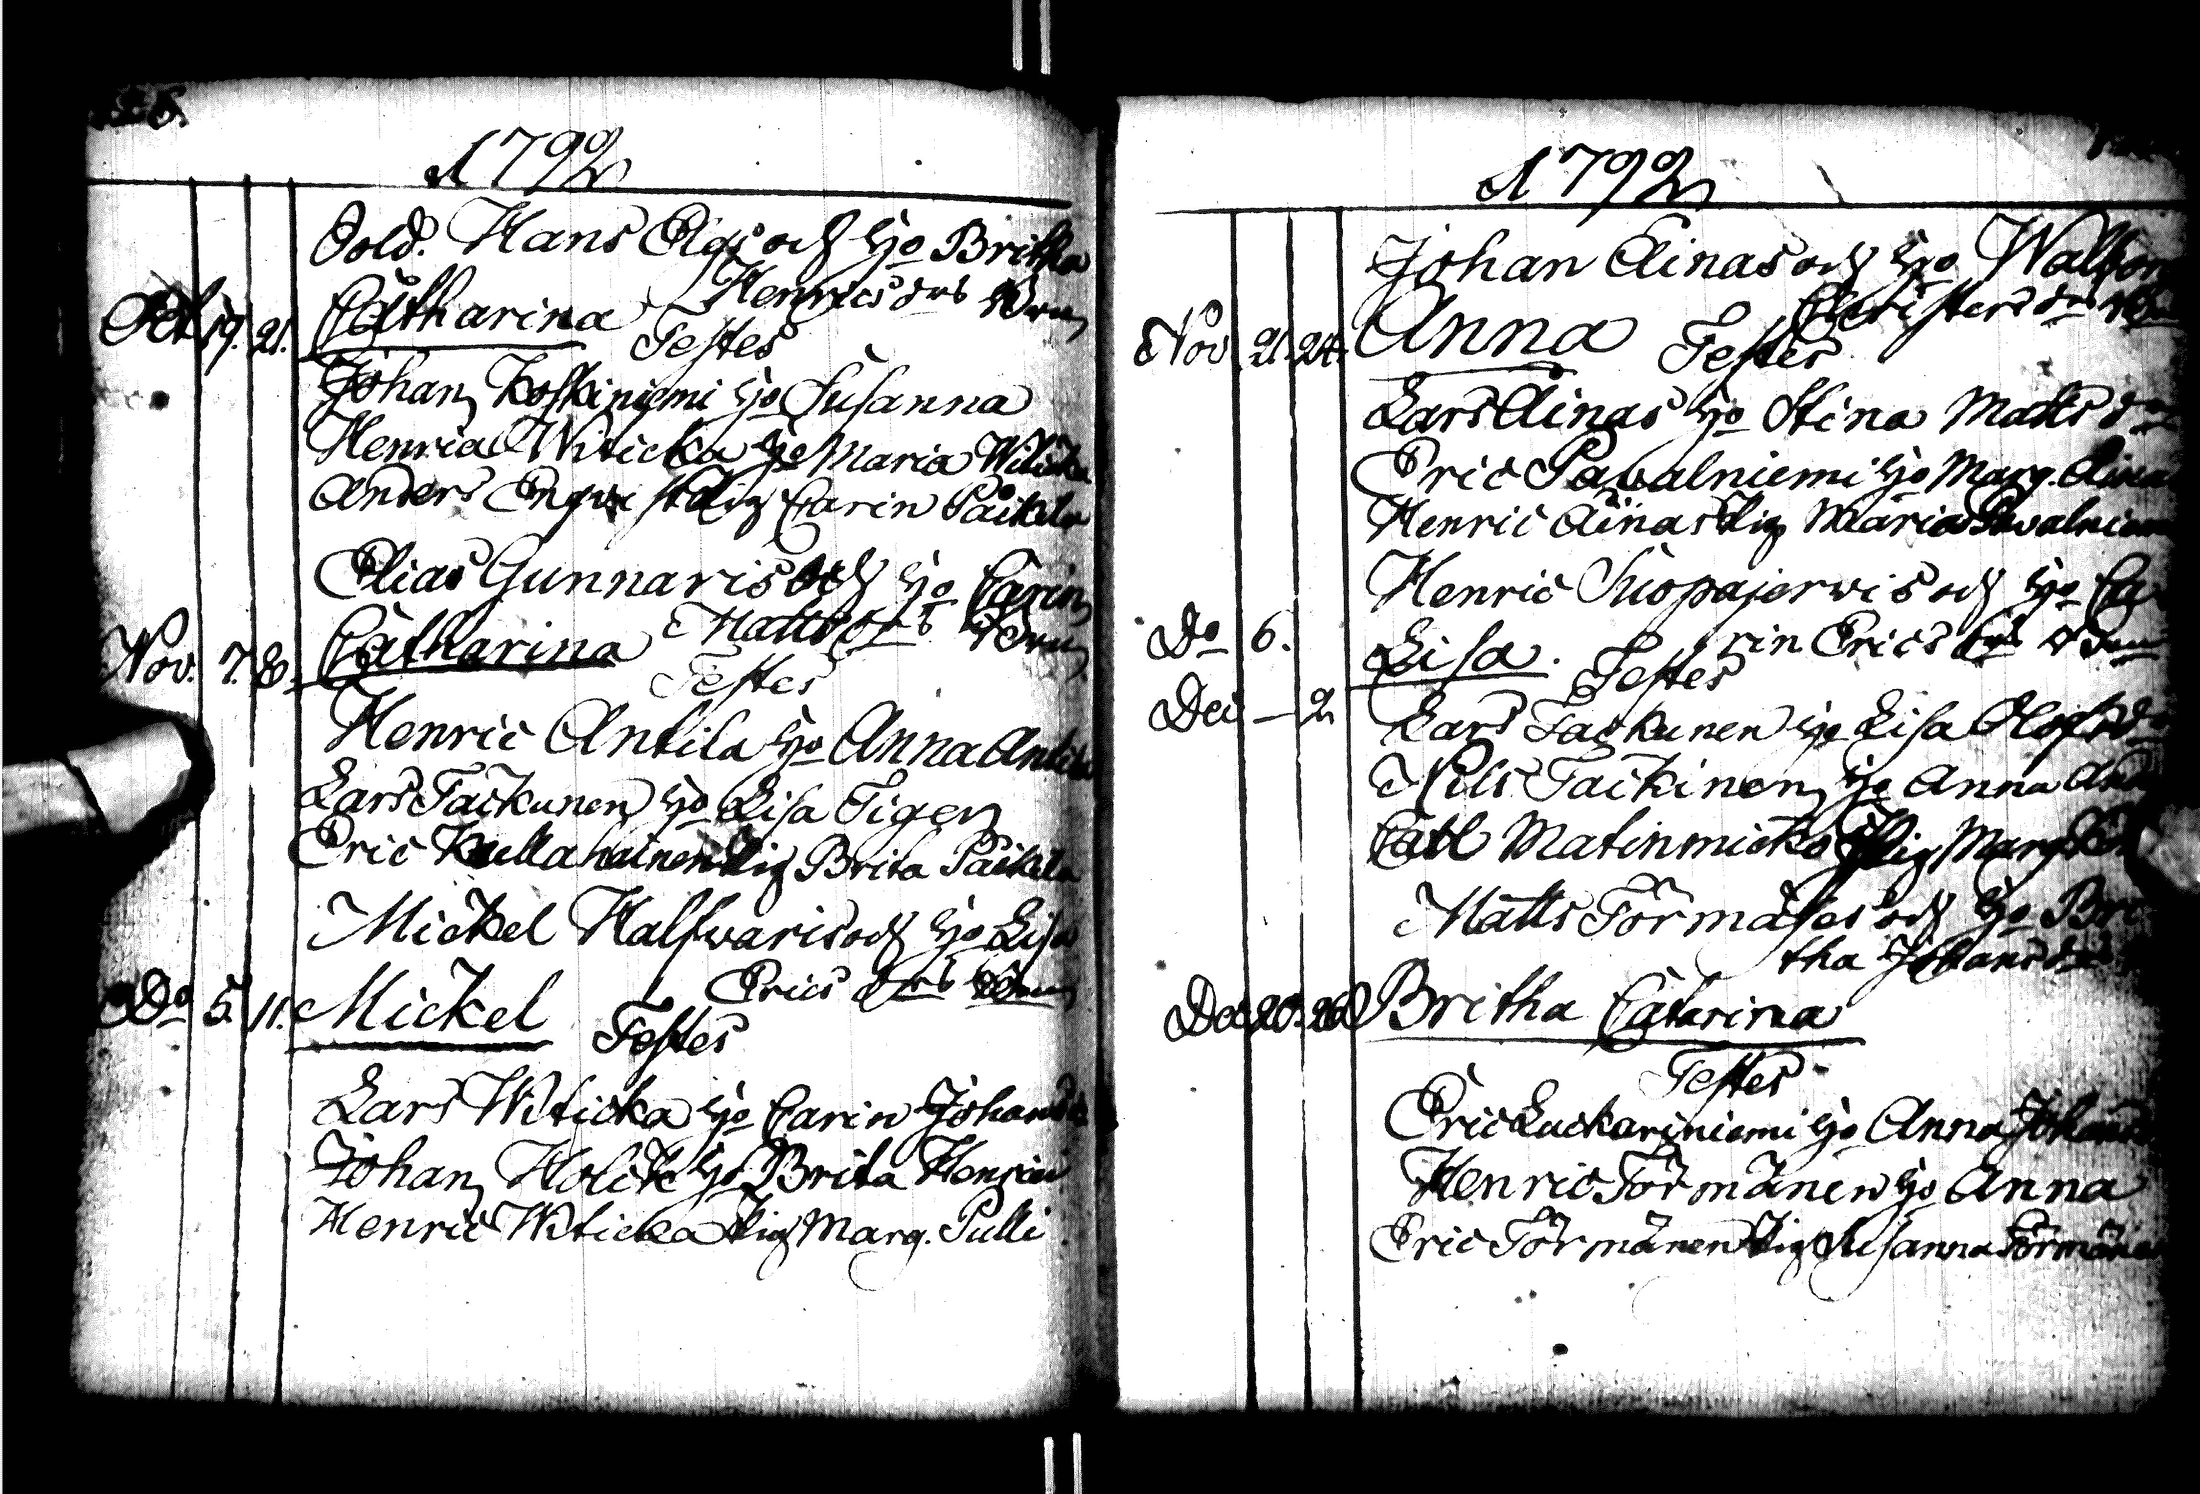 1792
Sold. Hans Elgs och Hο Britha
Henricsdrs Brn
Oct. 19. 21. Catharina
Testes
Johan Koskiniemi Ho Susanna
Henric Witicka Ho Maria Witicka
Anders Engve Pig Carin Päikila
Elias Gunnaris och Ho Carin
Mattsdrs Brn
Nov. 7. 8. Catharina
Testes
Henric Antila Ho Anna Antila
Lars Taikunen Ho Lisa Tiger
Eric Kullahainen Pig Brita Päikila
Mickel Halfwaris och Ho Lisa
Erics drs Brn
Do 5. 11. Mickel
Testes
Lars Witicka Ho Carin Johansd
Johan Holck Ho Brita Henrici
Henric Witicka Pig Marg. Pulli
1792
Johan Ainas och Ho Walbor
Christersdr
Nov 21. 24. Anna
Testes
Lars Ainas Ho Stina Mattsd
Eric Pavalniemi Ho Marg. Aina
Henric Ainas Pig Maria Pavalniem
Henric Suopajerwis och Ho Ca
rin Ericsdrs Brn
Do 6. Lisa.
Testes
Dec — 2
Lars Taikunen Ho Lisa Olofsd
Nils Taickinen Ho Anna
Carl Matinmicko Pig Marg
Matts Förmäses och Ho Bri
tha Johansdr
Dec 20. 26 Britha Catarina
Testes
Eric Luckariniemi Ho Anna Johansd
Henric Förmänen Ho Anna
Eric Förmänen Pig Susanna Förmäne